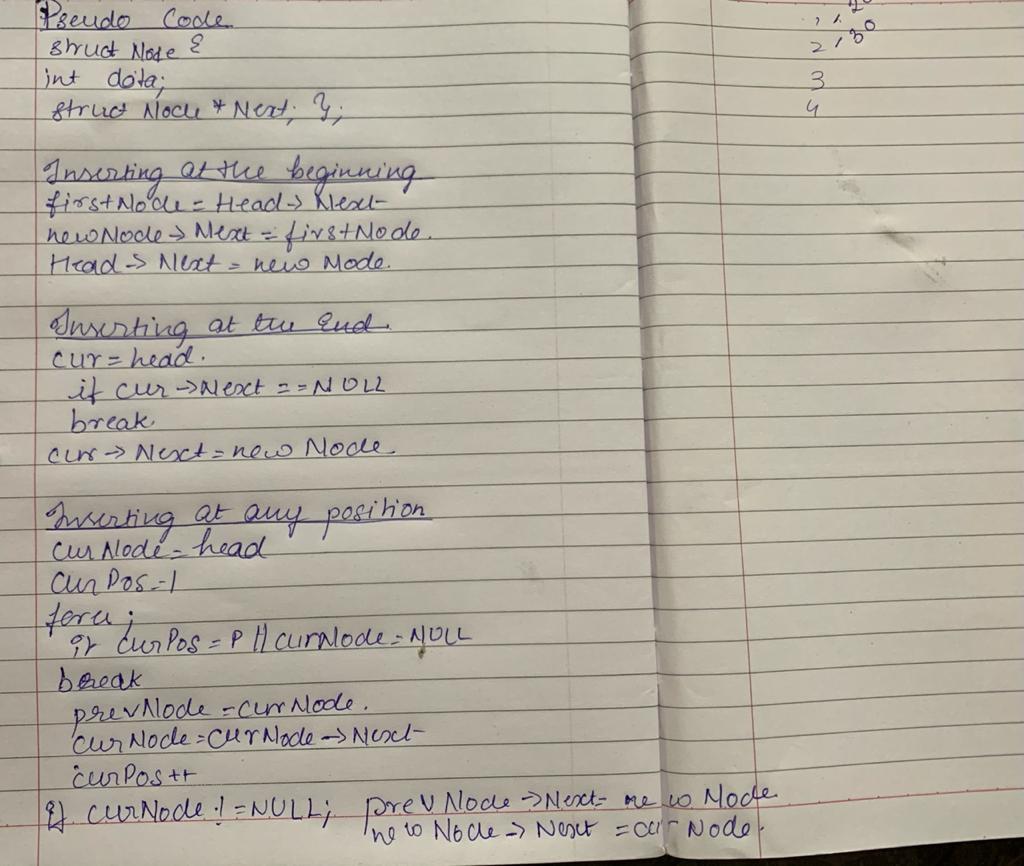 Pseudo Code
struct Node {
int data;
struct Node * Next; };
Inserting at the beginning
firstNode = Head -> Next
newNode -> Next = firstNode.
Head -> Next = new Node.
Inserting at the End.
cur = head.
if cur -> Next == NULL
break.
curr -> Next = new Node.
Inserting at any position
cur Node = head
Cur Pos = 1
if curPos = P || curNode = NULL
break
prevNode = currNode.
curNode = curNode -> Next
curPos ++
If curNode != NULL; prev Node -> Next = new Node
new Node -> Next = cur Node.
2, 30
3
4